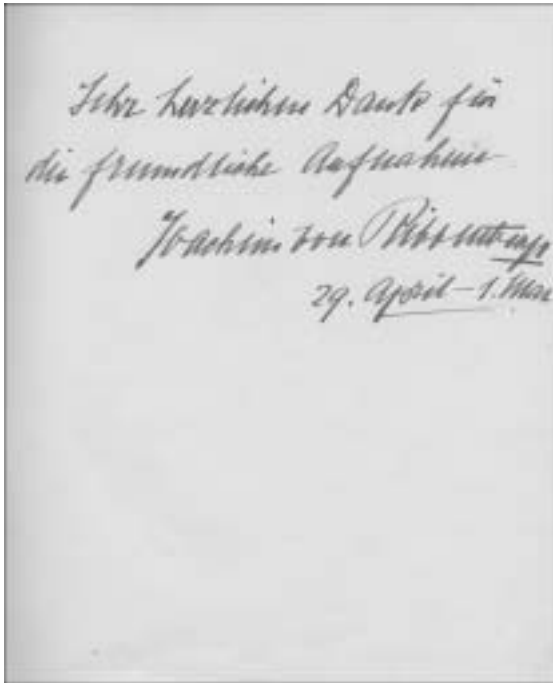 Sehr herzlichen Dank für
die freundliche Aufnahme
Joachim von Ribbentrop
29. April - 1. Mai